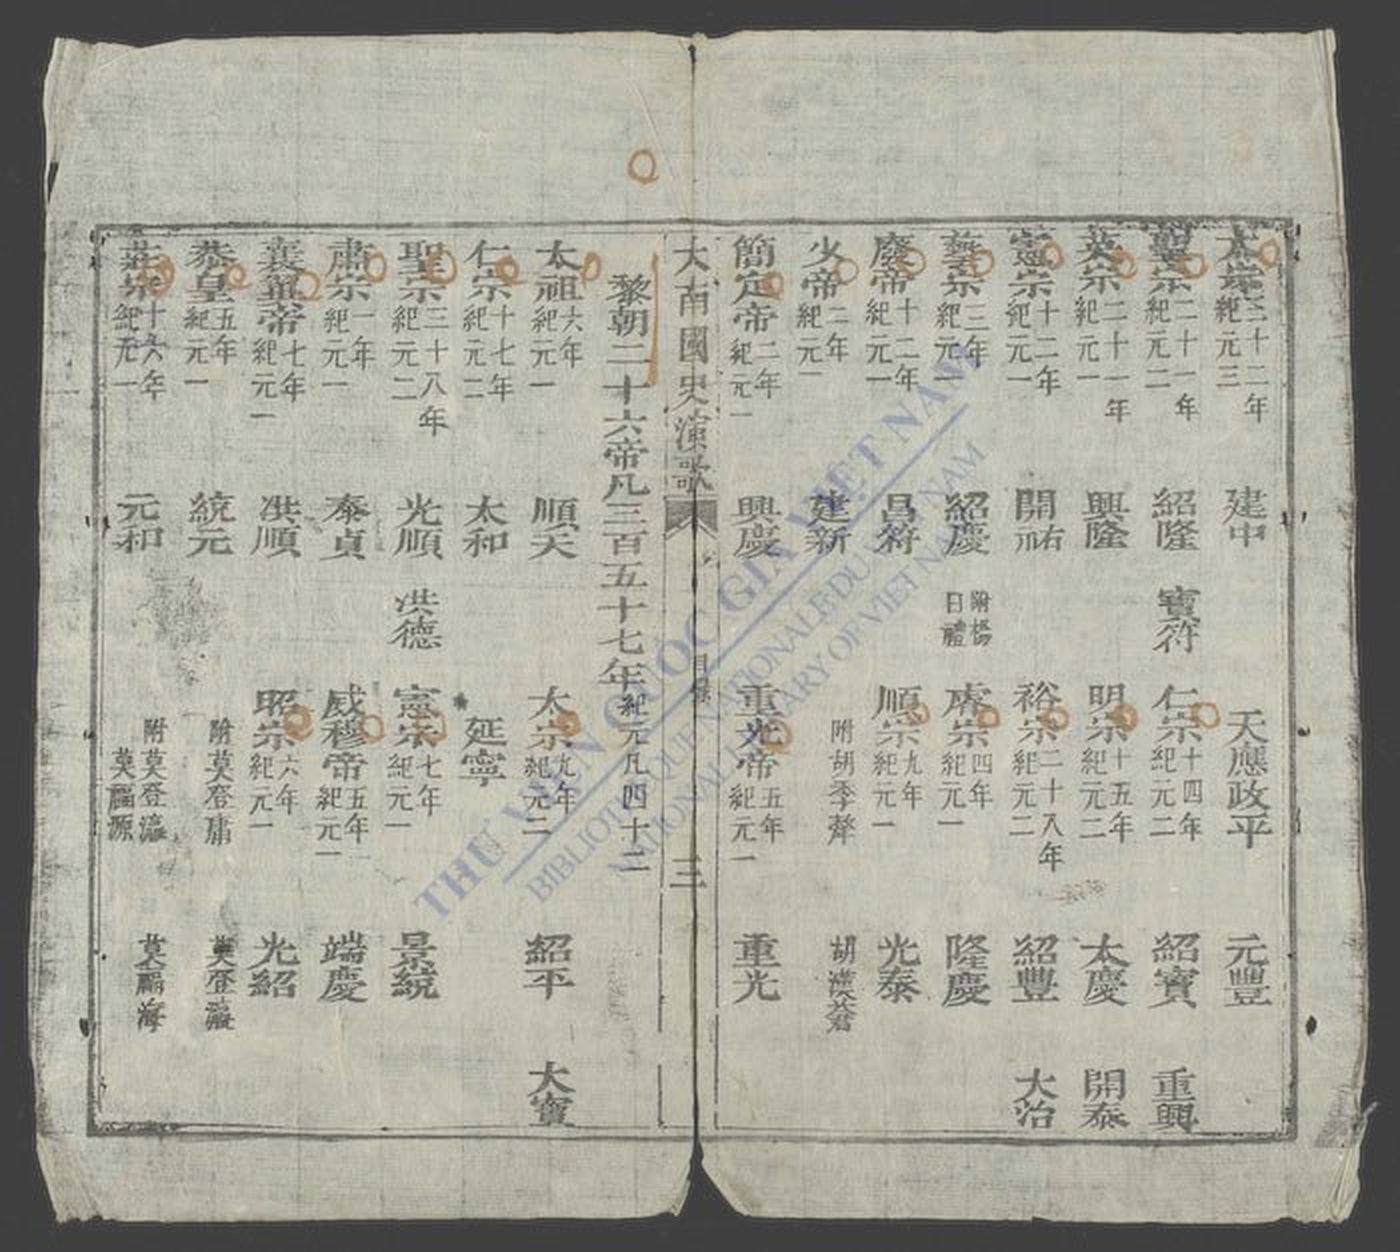 太宗三十二年紀元三 建中 天應政平 元豐
聖宗二十一年紀元二 紹隆 寶符 仁宗十四年紀元二 紹寶 重興
英宗二十一年紀元一 興隆 明宗十五年紀元二 太慶 開泰
憲宗十二年紀元一 開祐 裕宗二十八年紀元二 紹豐 大治
藝宗三年紀元一 紹慶 附楊日禮 睿宗四年紀元一 隆慶
廢帝十二年紀元一 昌符 順宗九年紀元一 光泰
少帝二年紀元一 建新 附胡季犛 胡漢蒼
簡定帝二年紀元一 興慶 重光帝五年紀元一 重光
大南國史演歌 目錄 三
黎朝二十六帝凡三百五十七年紀元凡四十二
太祖六年紀元一 順天 太宗九年紀元二 紹平 大寶
仁宗十七年紀元二 太和 延寧
聖宗三十八年紀元二 光順 洪德 憲宗七年紀元一 景統
肅宗一年紀元一 泰貞 威穆帝五年紀元一 端慶
襄翼帝七年紀元一 洪順 昭宗六年紀元一 光紹
恭皇五年紀元一 統元 附莫登庸 莫登瀛
莊宗十六年紀元一 元和 附莫登瀛 莫福源 莫福海
THƯ VIỆN QUỐC GIA VIỆT NAM
BIBLIOTHÈQUE NATIONALE DU VIET NAM
NATIONAL LIBRARY OF VIET NAM